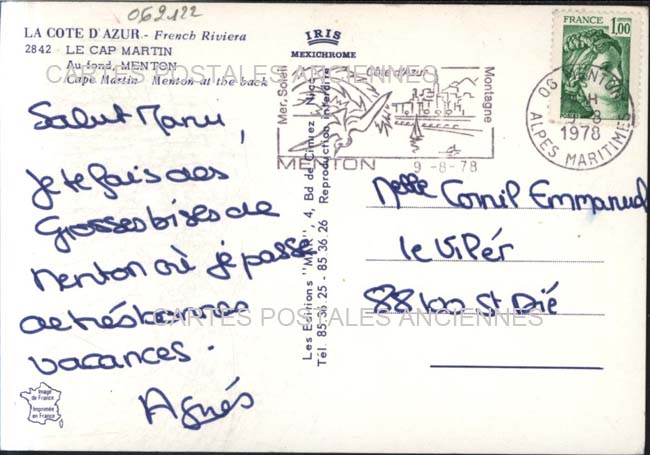 062122
LA COTE D'AZUR.- French Riviera
2842 - LE CAP MARTIN
Au fond, MENTON
Cape Martin - Menton at the back
IRIS
MEXICHROME
CARTES POSTALES ANCIENNES
Salut Manu,
je te fais des
Grosses bises de
Menton où je passe
de très bonnes
vacances.
Agnés
Image
de France
Imprimée
en France
Les Éditions "MAR", 4, Bd de Cimiez, Nice
Tél. 85.36.25 - 85.36.26 Reproduction interdite
Mer, Soleil
Côte d'Azur
Montagne
MENTON
9-8-78
FRANCE
1,00
06 MENTON
H
9-8
1978
ALPES MARITIMES
Melle Cornil Emmanuel
le Vilpér
88100 St Dié
CARTES POSTALES ANCIENNES